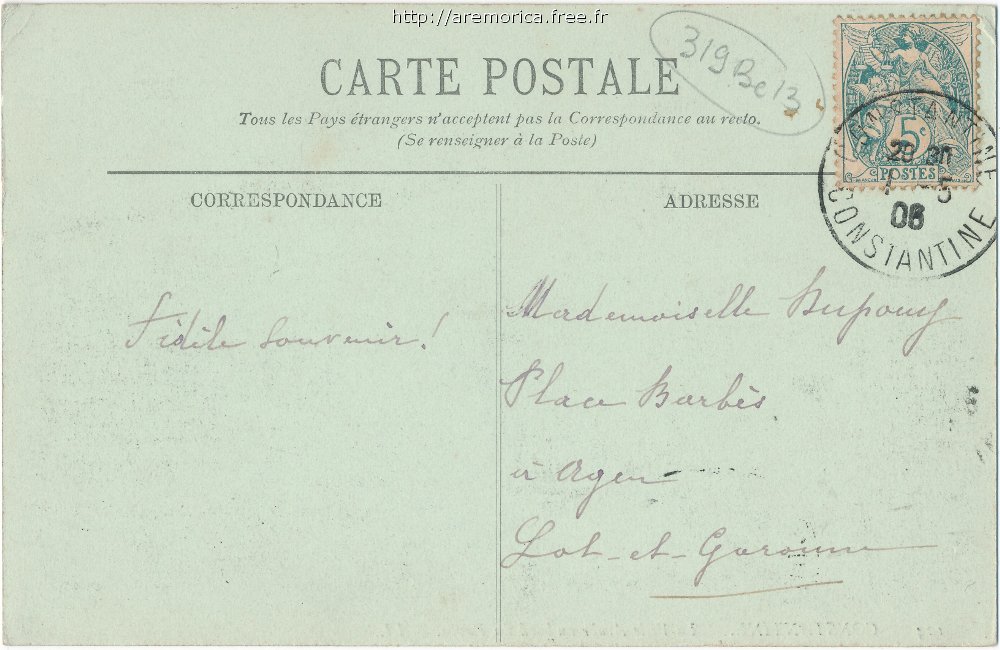 http://aremorica.free.fr
319Be13
CARTE POSTALE
Tous les Pays étrangers n'acceptent pas la Correspondance au recto.
(Se renseigner à la Poste)
5c
POSTES
CONSTANTINE
1 -5
06
CONSTANTINE
CORRESPONDANCE
ADRESSE
Fidèle souvenir!
Mademoiselle Dupouy
Place Barbès
à Agen
Lot-et-Garonne